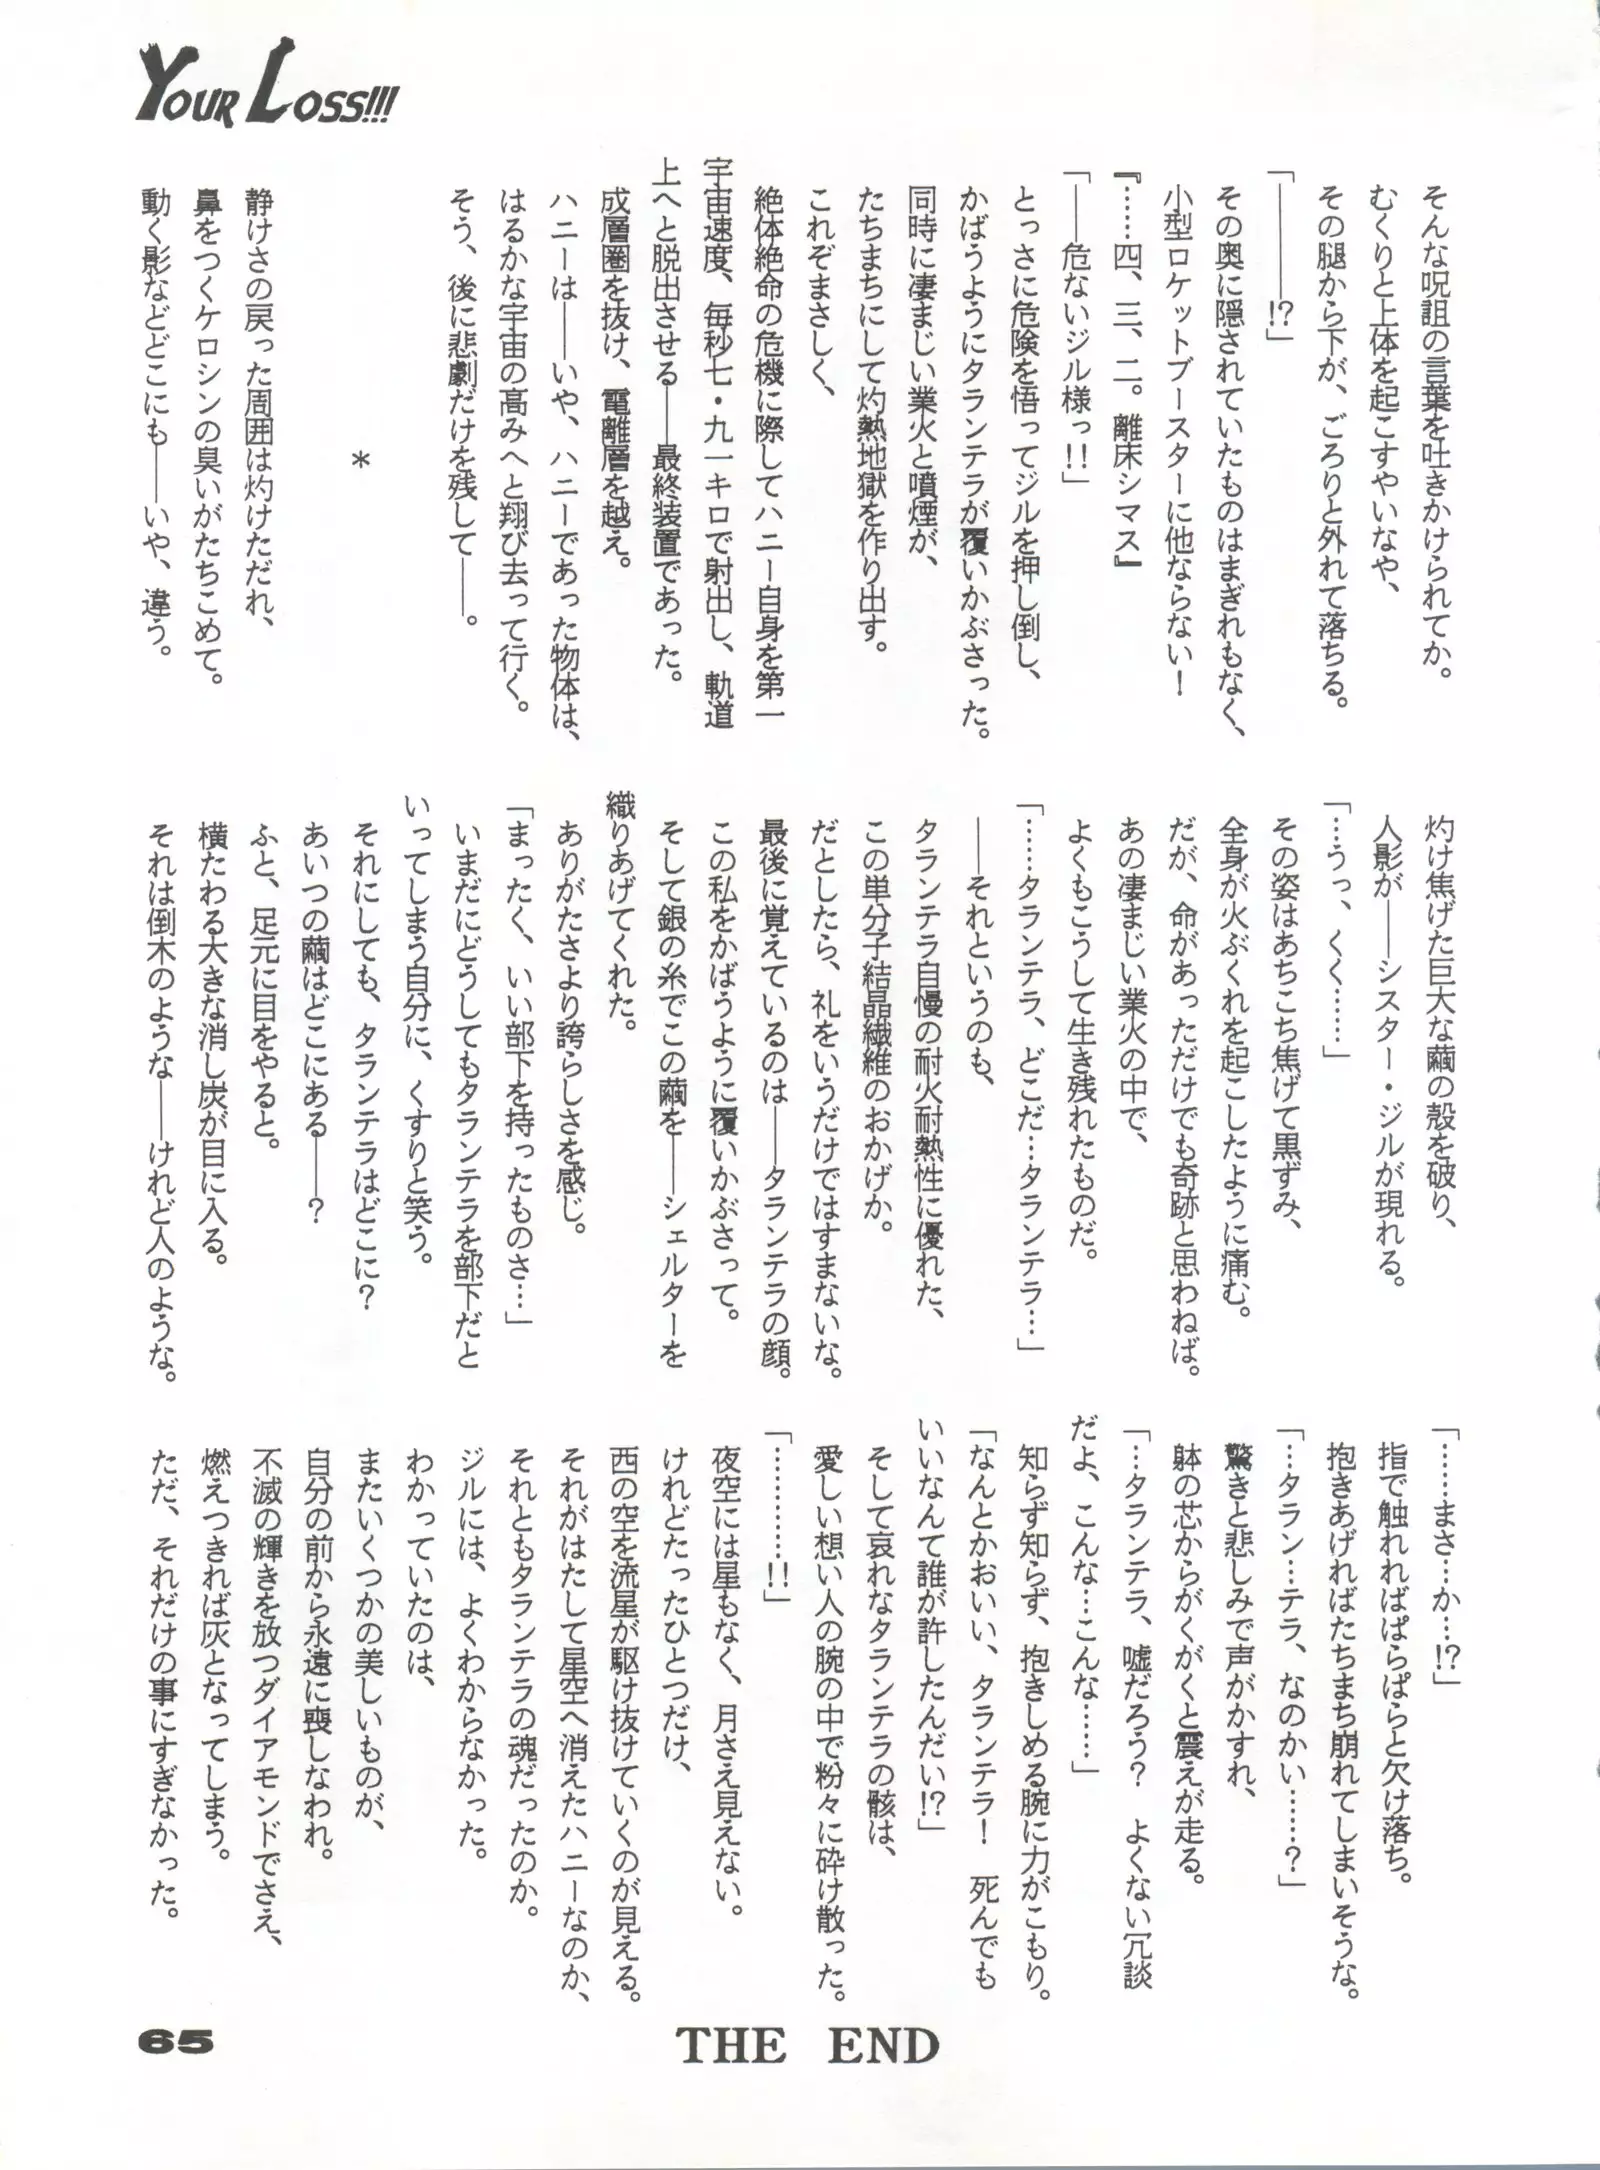 YOUR LOSS!!!
そんな呪詛の言葉を吐きかけられてか。
むくりと上体を起こすやいなや、
その腿から下が、ごろりと外れて落ちる。
「――――!?」
その奥に隠されていたものはまぎれもなく、
小型ロケットブースターに他ならない！
『……四、三、二。離床シマス』
「――危ないジル様っ!!」
とっさに危険を悟ってジルを押し倒し、
かばうようにタランテラが覆いかぶさった。
同時に凄まじい業火と噴煙が、
たちまちにして灼熱地獄を作り出す。
これぞまさしく、
絶体絶命の危機に際してハニー自身を第一
宇宙速度、毎秒七・九一キロで射出し、軌道
上へと脱出させる――最終装置であった。
成層圏を抜け、電離層を越え。
ハニーは――いや、ハニーであった物体は、
はるかな宇宙の高みへと翔び去って行く。
そう、後に悲劇だけを残して――。
＊
静けさの戻った周囲は灼けただれ、
鼻をつくケロシンの臭いがたちこめて。
動く影などどこにも――いや、違う。
灼け焦げた巨大な繭の殻を破り、
人影が――シスター・ジルが現れる。
「…うっ、くく……」
その姿はあちこち焦げて黒ずみ、
全身が火ぶくれを起こしたように痛む。
だが、命があっただけでも奇跡と思わねば。
あの凄まじい業火の中で、
よくもこうして生き残れたものだ。
「……タランテラ、どこだ…タランテラ…」
――それというのも、
タランテラ自慢の耐火耐熱性に優れた、
この単分子結晶繊維のおかげか。
だとしたら、礼をいうだけではすまないな。
最後に覚えているのは――タランテラの顔。
この私をかばうように覆いかぶさって。
そして銀の糸でこの繭を――シェルターを
織りあげてくれた。
ありがたさより誇らしさを感じ。
「まったく、いい部下を持ったものさ…」
いまだにどうしてもタランテラを部下だと
いってしまう自分に、くすりと笑う。
それにしても、タランテラはどこに？
あいつの繭はどこにある――？
ふと、足元に目をやると。
横たわる大きな消し炭が目に入る。
それは倒木のような――けれど人のような。
「……まさ…か…!?」
指で触れればぱらぱらと欠け落ち。
抱きあげればたちまち崩れてしまいそうな。
「…タラン…テラ、なのかい……？」
驚きと悲しみで声がかすれ、
躰の芯からがくがくと震えが走る。
「…タランテラ、嘘だろう？　よくない冗談
だよ、こんな…こんな……」
知らず知らず、抱きしめる腕に力がこもり。
「なんとかおいい、タランテラ！　死んでも
いいなんて誰が許したんだい!?」
そして哀れなタランテラの骸は、
愛しい想い人の腕の中で粉々に砕け散った。
「…………!!」
夜空には星もなく、月さえ見えない。
けれどたったひとつだけ、
西の空を流星が駆け抜けていくのが見える。
それがはたして星空へ消えたハニーなのか、
それともタランテラの魂だったのか。
ジルには、よくわからなかった。
わかっていたのは、
またいくつかの美しいものが、
自分の前から永遠に喪しなわれ。
不滅の輝きを放つダイアモンドでさえ、
燃えつきれば灰となってしまう。
ただ、それだけの事にすぎなかった。
THE END
65